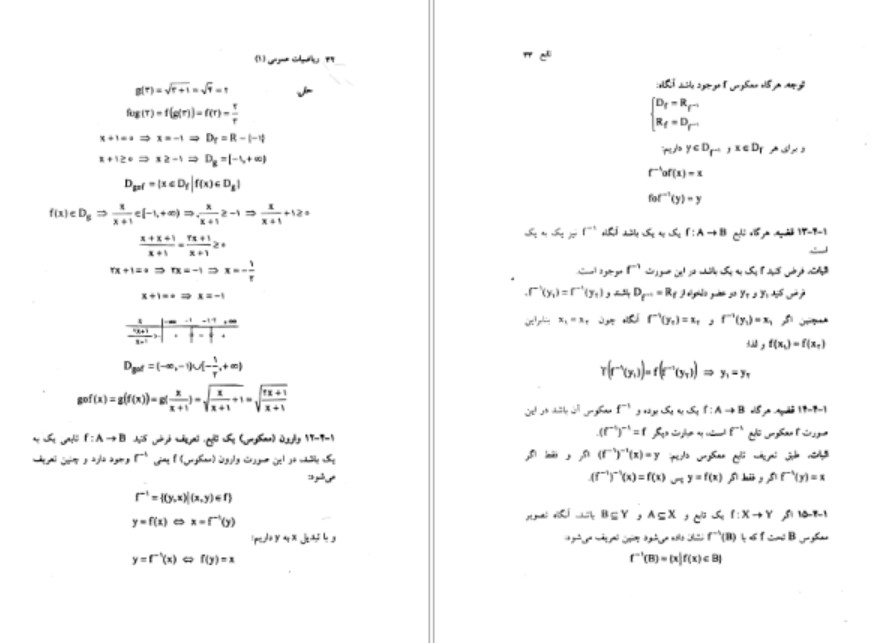 ۳۲ ریاضیات عمومی (۱)
حل.
g(۳) = √۳+۱ = √۴ = ۲
fog(۳) = f(g(۳)) = f(۲) = ۲/۳
x + ۱ = ۰ ⇒ x = −۱ ⇒ D_f = R − {−۱}
x + ۱ ≥ ۰ ⇒ x ≥ −۱ ⇒ D_g = [−۱, +∞)
D_gof = {x ∈ D_f | f(x) ∈ D_g}
f(x) ∈ D_g ⇒ x/(x+۱) ∈ [−۱, +∞) ⇒ x/(x+۱) ≥ −۱ ⇒ x/(x+۱) + ۱ ≥ ۰
(x + x + ۱)/(x+۱) = (۲x+۱)/(x+۱) ≥ ۰
۲x + ۱ = ۰ ⇒ ۲x = −۱ ⇒ x = −۱/۲
x + ۱ = ۰ ⇒ x = −۱
x −∞ −۱ −۱/۲ +∞
(۲x+۱)/(x+۱) + − +
D_gof = (−∞, −۱) ∪ [−۱/۲, +∞)
gof(x) = g(f(x)) = g(x/(x+۱)) = √(x/(x+۱) + ۱) = √((۲x+۱)/(x+۱))
۱-۴-۱۲ وارون (معکوس) یک تابع. تعریف فرض کنید f : A → B تابعی یک به
یک باشد، در این صورت وارون (معکوس) f یعنی f⁻¹ وجود دارد و چنین تعریف
می‌شود:
f⁻¹ = {(y,x)|(x,y) ∈ f}
y = f(x) ⇔ x = f⁻¹(y)
و با تبدیل x به y داریم:
y = f⁻¹(x) ⇔ f(y) = x
تابع ۳۳
توجه. هرگاه معکوس f موجود باشد آنگاه:
D_f = R_f⁻¹
R_f = D_f⁻¹
و برای هر x ∈ D_f و y ∈ D_f⁻¹ داریم:
f⁻¹of(x) = x
fof⁻¹(y) = y
۱-۴-۱۳ قضیه. هرگاه تابع f : A → B یک به یک باشد آنگاه f⁻¹ نیز یک به یک
است.
اثبات. فرض کنید f یک به یک باشد، در این صورت f⁻¹ موجود است.
فرض کنید y₁ و y₂ دو عضو دلخواه از D_f⁻¹ = R_f باشند و f⁻¹(y₁) = f⁻¹(y₂).
همچنین اگر f⁻¹(y₁) = x₁ و f⁻¹(y₂) = x₂ آنگاه چون x₁ = x₂ بنابراین
f(x₁) = f(x₂) و لذا:
f(f⁻¹(y₁)) = f(f⁻¹(y₂)) ⇒ y₁ = y₂
۱-۴-۱۴ قضیه. هرگاه f : A → B یک به یک بوده و f⁻¹ معکوس آن باشد در این
صورت f معکوس تابع f⁻¹ است، به عبارت دیگر (f⁻¹)⁻¹ = f.
اثبات. طبق تعریف تابع معکوس داریم: (f⁻¹)⁻¹(x) = y اگر و فقط اگر
f⁻¹(y) = x اگر و فقط اگر y = f(x) پس (f⁻¹)⁻¹(x) = f(x).
۱-۴-۱۵ اگر f : X → Y یک تابع و A ⊆ X و B ⊆ Y باشد، آنگاه تصویر
معکوس B تحت f که با f⁻¹(B) نشان داده می‌شود چنین تعریف می‌شود:
f⁻¹(B) = {x|f(x) ∈ B}